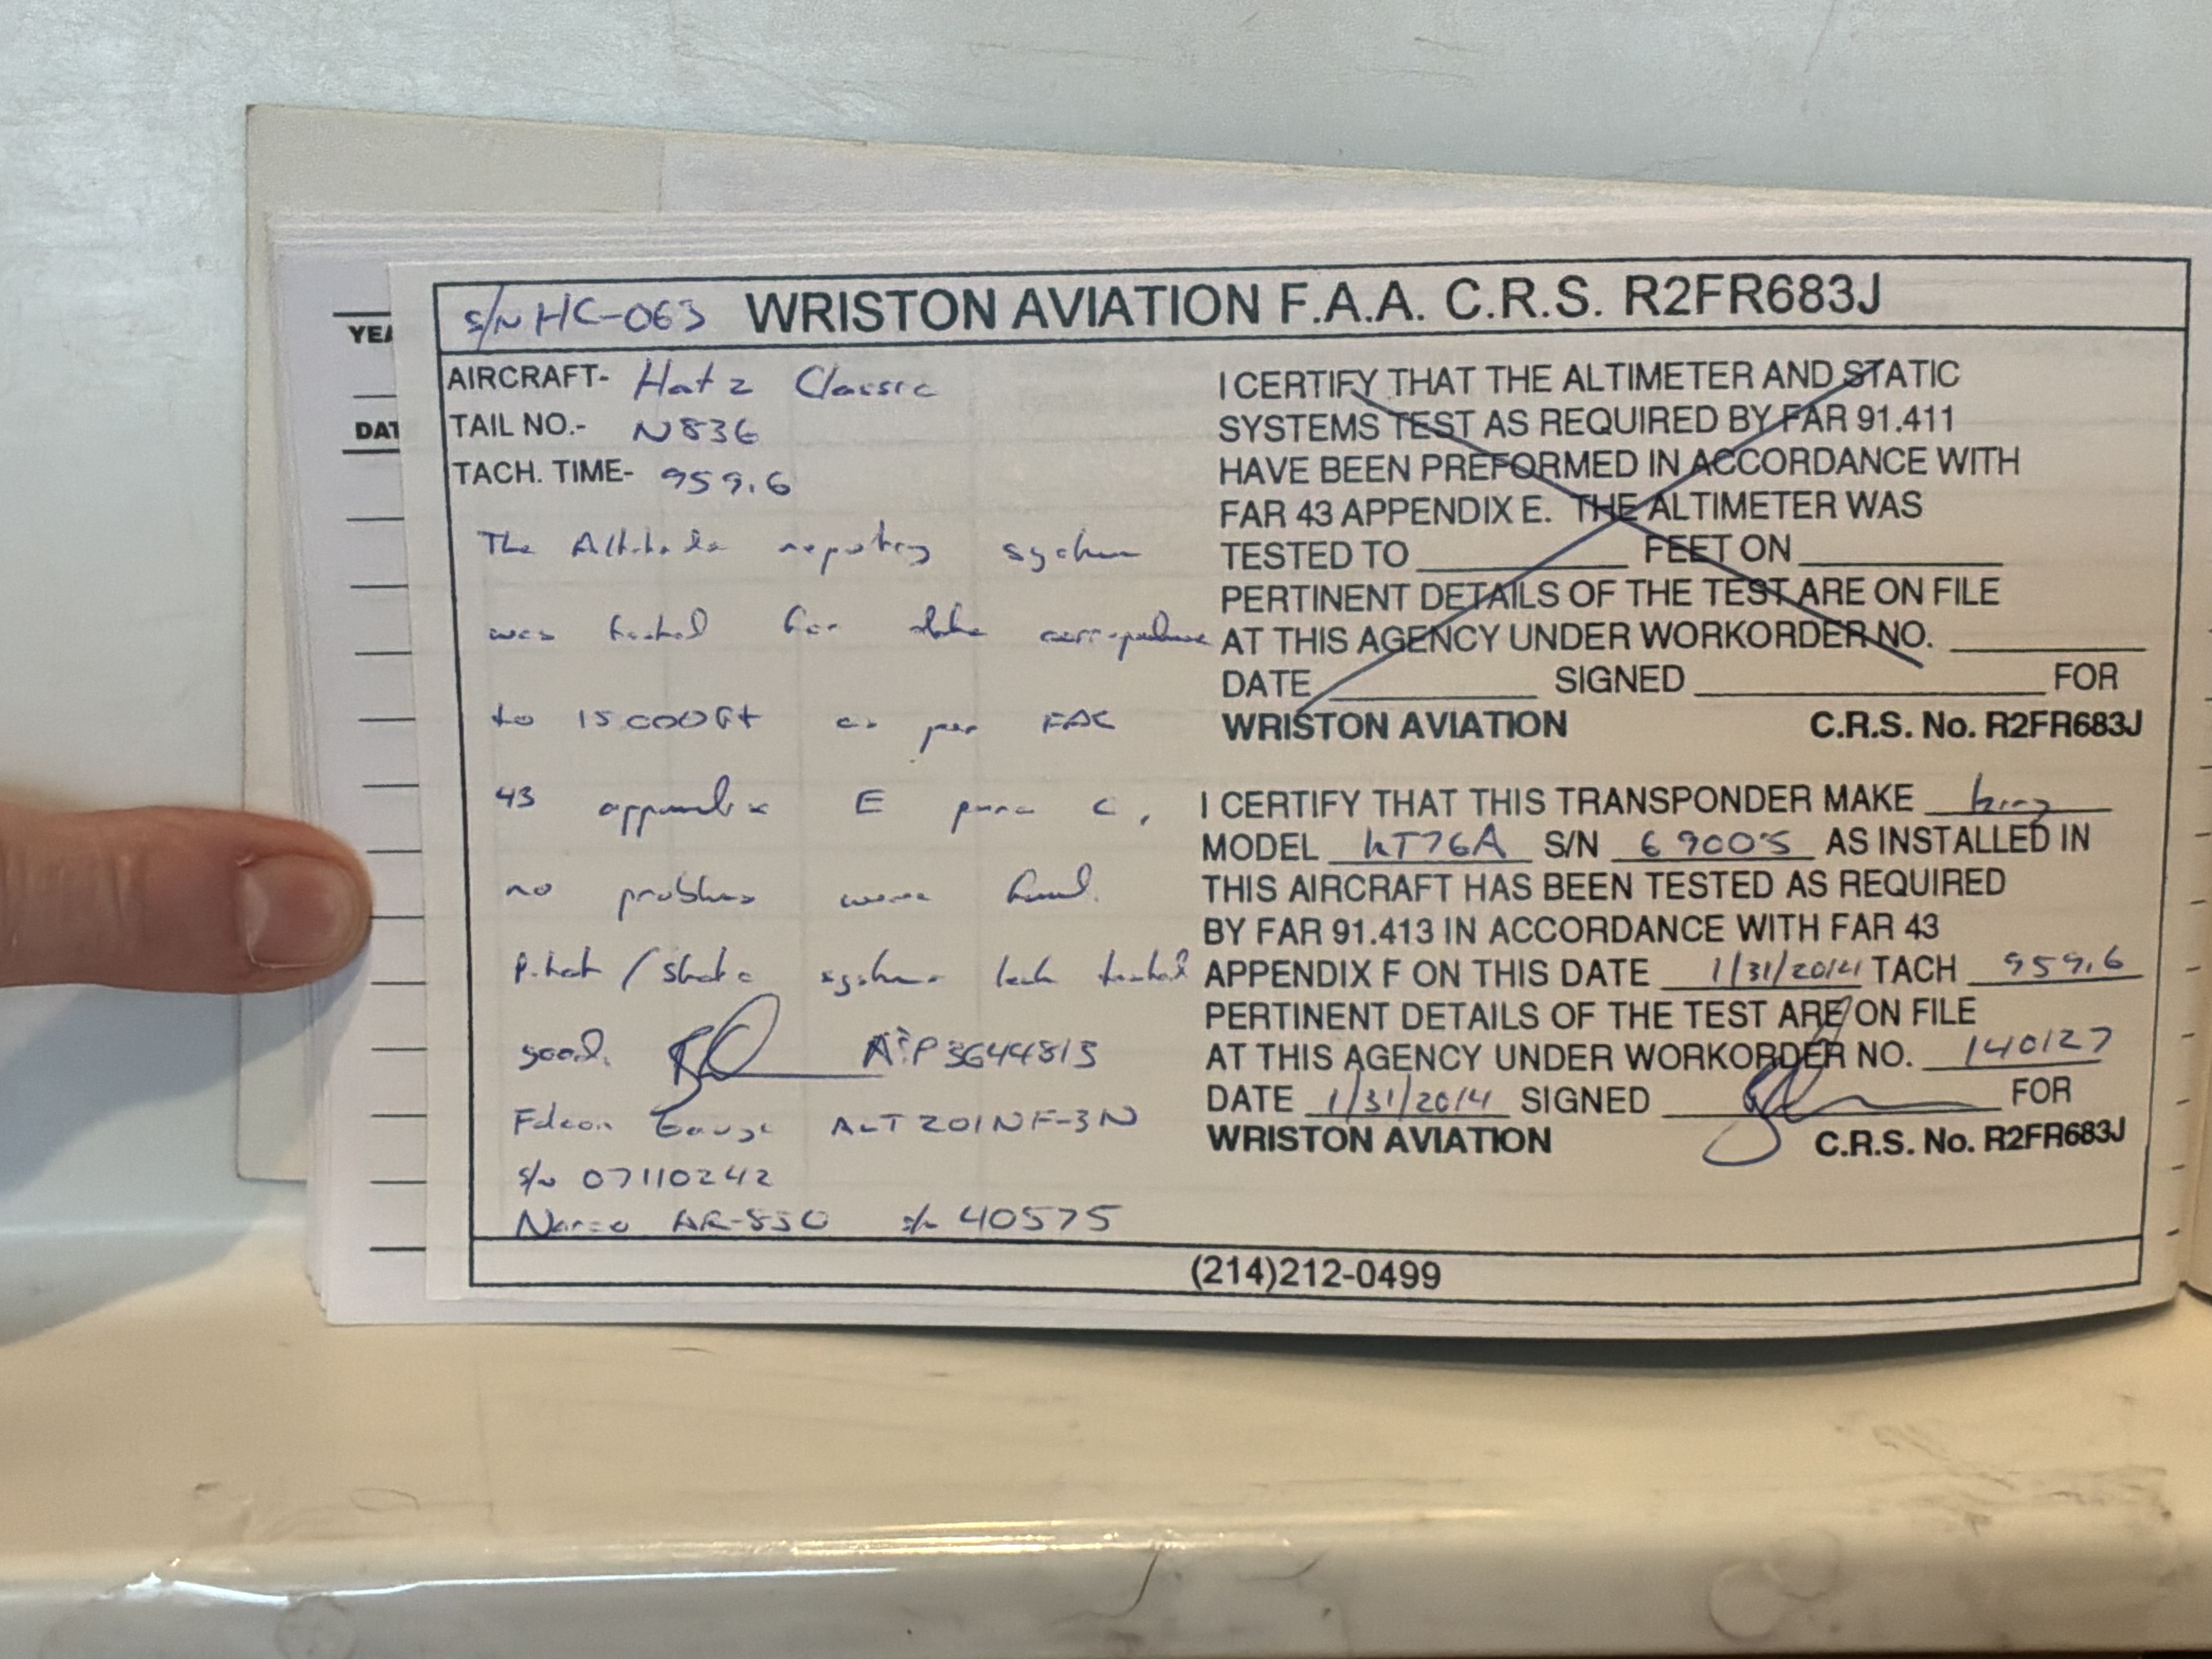 YEA
DAT
S/N HC-063 WRISTON AVIATION F.A.A. C.R.S. R2FR683J
AIRCRAFT- Hatz Classic
TAIL NO.- N836
TACH. TIME- 959.6
The Altitude reporting system
was tested for data correspondence
to 15000ft as per FAR
43 appendix E para c,
no problems were found.
Pitot / Static systems leak tested
good. A&P 3644813
Falcon Gauge ALT201NF-3N
S/N 07110242
Narco AR-850 S/N 40575
I CERTIFY THAT THE ALTIMETER AND STATIC
SYSTEMS TEST AS REQUIRED BY FAR 91.411
HAVE BEEN PREFORMED IN ACCORDANCE WITH
FAR 43 APPENDIX E. THE ALTIMETER WAS
TESTED TO FEET ON
PERTINENT DETAILS OF THE TEST ARE ON FILE
AT THIS AGENCY UNDER WORKORDER NO.
DATE SIGNED FOR
WRISTON AVIATION C.R.S. No. R2FR683J
I CERTIFY THAT THIS TRANSPONDER MAKE king
MODEL KT76A S/N 69005 AS INSTALLED IN
THIS AIRCRAFT HAS BEEN TESTED AS REQUIRED
BY FAR 91.413 IN ACCORDANCE WITH FAR 43
APPENDIX F ON THIS DATE 1/31/2014 TACH 959.6
PERTINENT DETAILS OF THE TEST ARE ON FILE
AT THIS AGENCY UNDER WORKORDER NO. 140127
DATE 1/31/2014 SIGNED FOR
WRISTON AVIATION C.R.S. No. R2FR683J
(214)212-0499